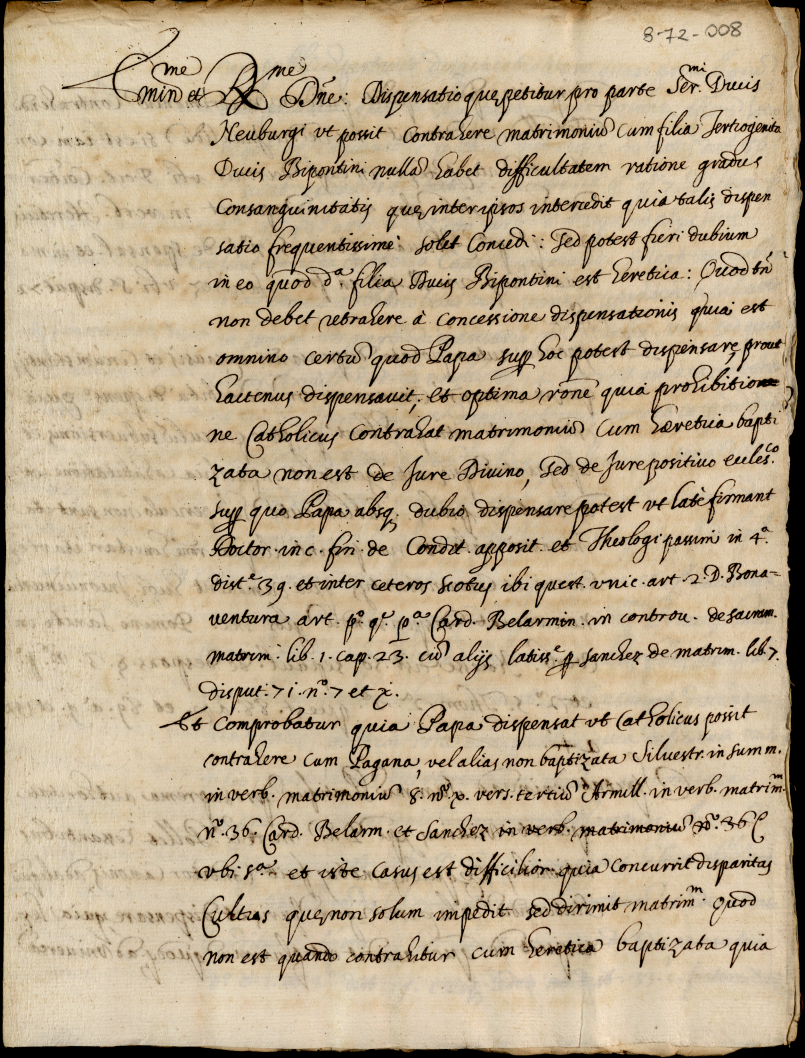 8-72-008
Emin^me et R^me Dñe: Dispensatio que petitur pro parte Ser.^mi Ducis
Neuburgi vt possit contrahere matrimoniũ cum filia Tertiogenita
Ducis Bipontini nullã habet difficultatem ratione gradus
Consanguinitatis que inter ipsos intercedit quia talis dispen
satio frequentissime solet Concedi: Sed potest fieri dubium
in eo quod d.^a filia Ducis Bipontini est heretica: Quod tñ
non debet retrahere à concessione dispensationis quia est
omnino certũ quod Papa sup hoc potest dispensare, prout
hactenus dispensauit, et optima rõne quia prohibitio
ne Catholicus contrahat matrimoniũ cum hæretica bapti
zata non est de Jure Diuino, Sed de Jure positiuo eccles.^co
sup quo Papa absq. dubio dispensare potest vt latè firmant
Doctor. in c. fin. de Condit. apposit. et Theologi passim in 4.^a
dist.^e 39. et inter ceteros Scotus ibi quest. vnic. art. 2. D. Bona-
uentura art. p.^o q.^e p.^a Card. Belarmin. in controu. de sacram.
matrim. lib. 1. cap. 23. cũ alijs latiss.^e p Sanchez de matrim. lib. 7.
disput. 71. n.^o 7 et x.
Et Comprobatur quia Papa dispensat vt Catholicus possit
contrahere cum Pagana, vel alias non baptizata Siluestr. in summ.
in verb. matrimoniũ 8. n.^o x. vers. tertiũ Armill. in verb. matrim.^m
n.^o 36. Card. Belarm. et Sanchez in verb. matrimoniũ n.^o 36
vbi s.^a et iste casus est difficilior quia concurrit disparitas
Cultus que non solum impedit sed dirimit matrim.^m quod
non est quando contrahitur cum heretica baptizata quia